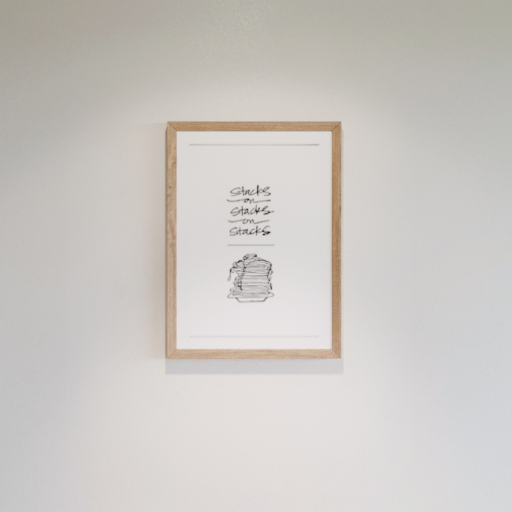 Stacks
on
Stacks
on
Stacks